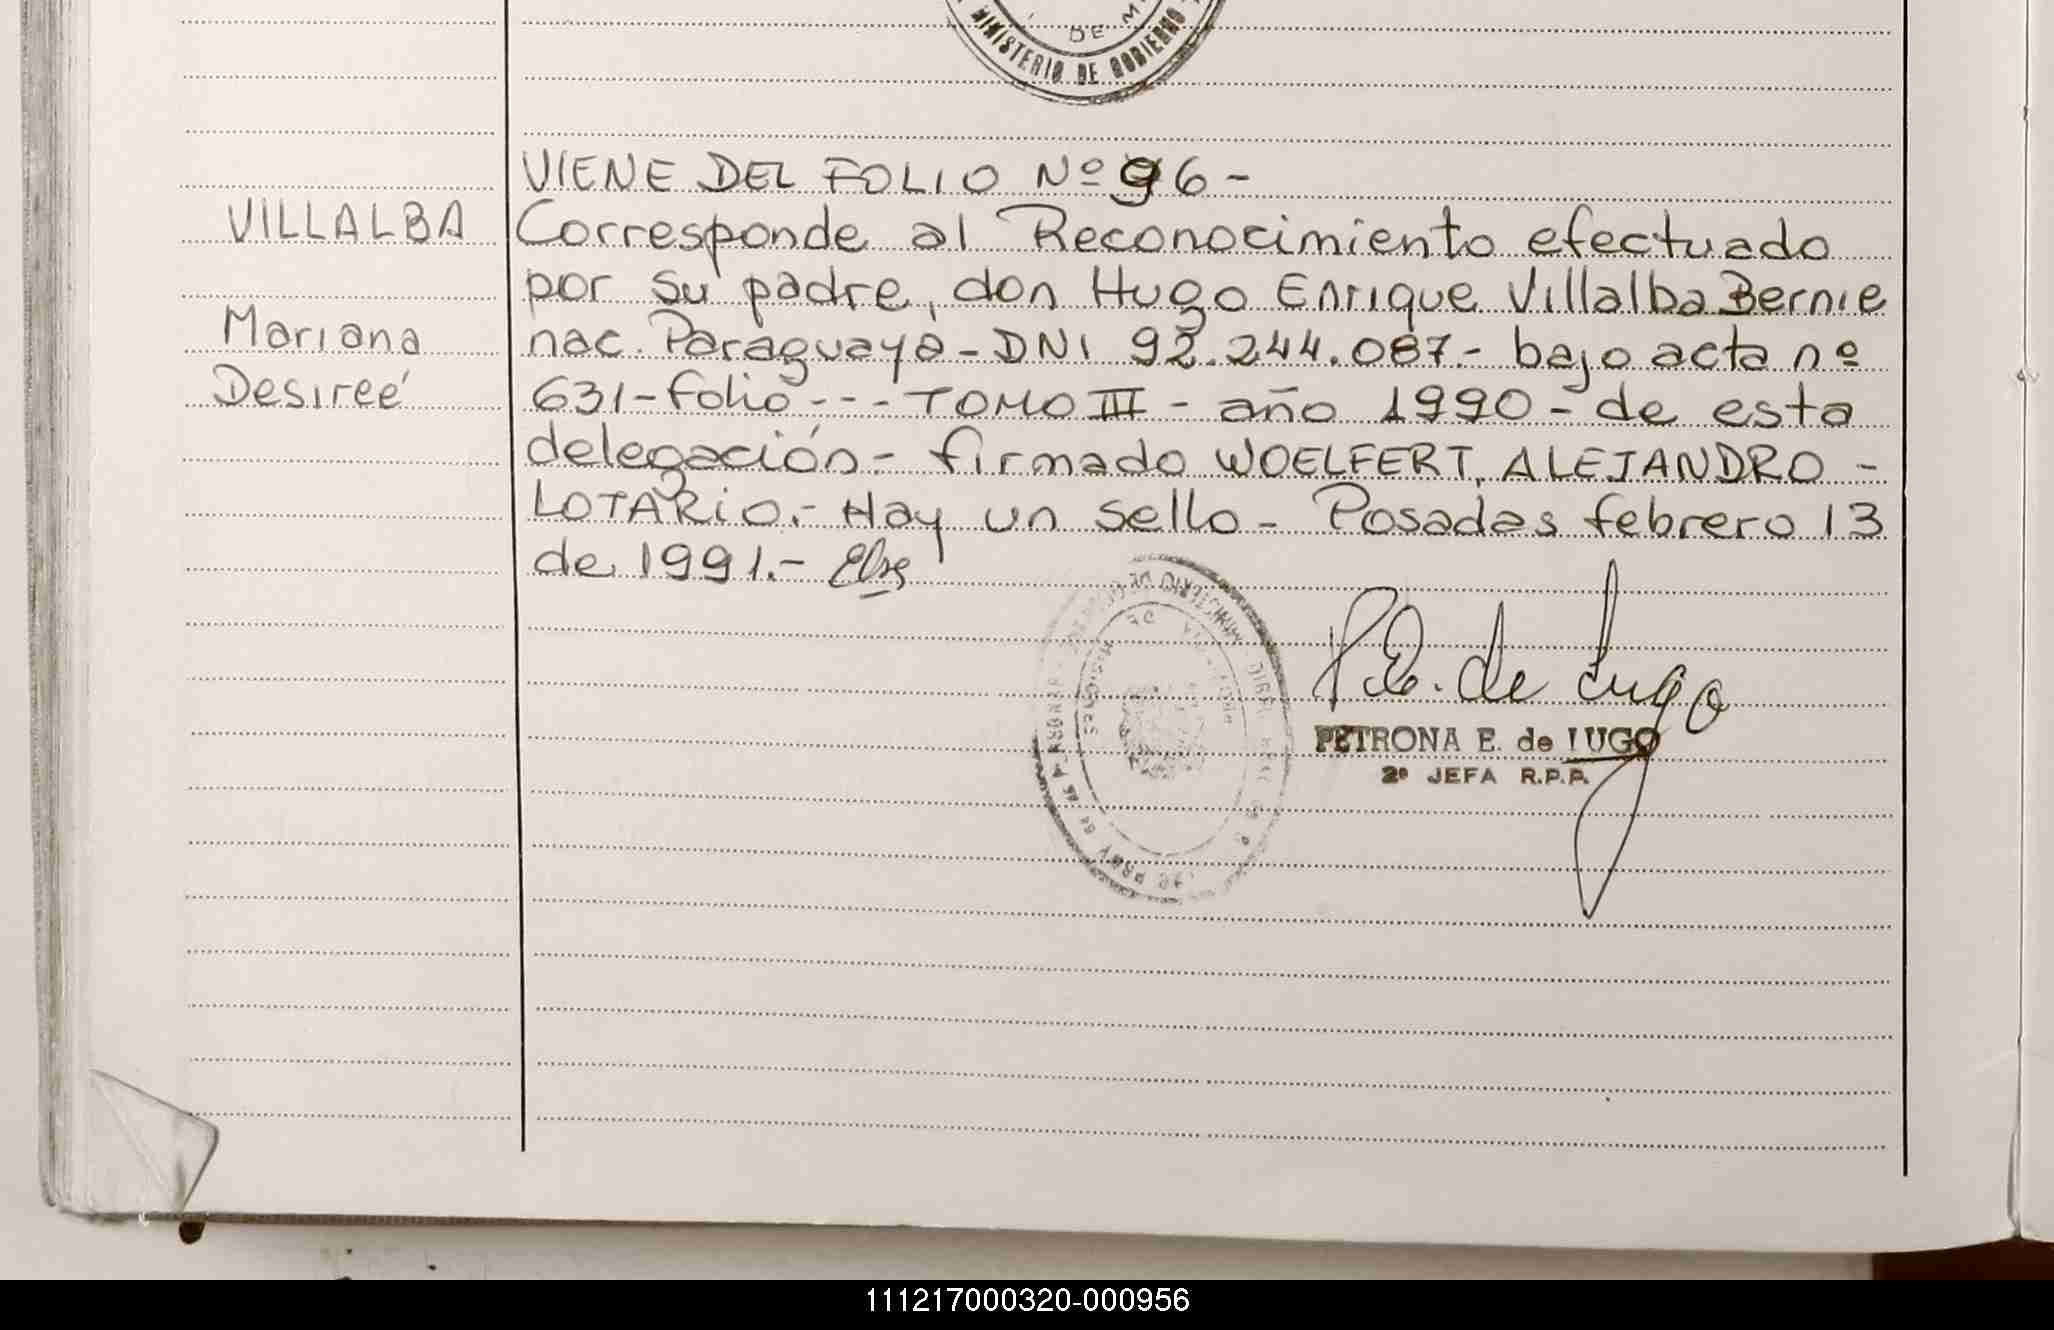 DE M
MINISTERIO DE GOBIERNO
VIENE DEL FOLIO Nº 96-
VILLALBA
Corresponde al Reconocimiento efectuado
por su padre, don Hugo Enrique Villalba Bernie
Mariana
nac. Paraguaya - DNI 92.244.087.- bajo acta nº
Desireé
631-folio --- TOMO III - año 1990 - de esta
delegación.- firmado WOELFERT, ALEJANDRO -
LOTARIO.- Hay un sello - Posadas febrero 13
de 1991.-
P. E. de Lugo
PETRONA E. de LUGO
2º JEFA R.P.P.
111217000320-000956